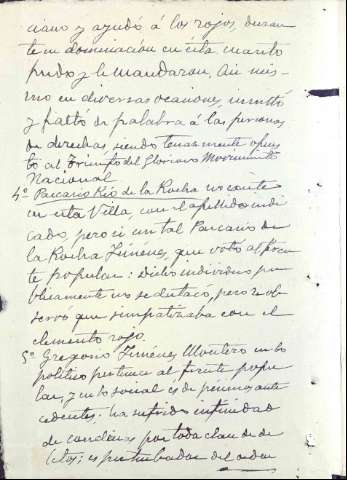 ciano y ayudó á los rojos, duran
te su dominación en ésta, cuanto
pudo y le mandaron. Así mis-
mo en diversas ocasiones, insultó
y faltó de palabra á las personas
de derechas, siendo tenazmente opues
to al Triunfo del Glorioso Movimiento
Nacional.
4º Pascasio Rio de la Rocha no existe
en esta Villa, con el apellido indi
cado, pero si un tal Pascasio de
la Rocha Jiménez, que votó al fren
te popular: Dicho individuo pu
blicamente no se destacó, pero se ob
servó que simpatizaba con el
elemento rojo.
5º Gregorio Jiménez Montero en lo
político pertenece al frente popu
lar, y en lo social es de pésimos ante
cedentes. ha sufrido infinidad
de condenas por toda clase de de
litos; es perturbador del orden